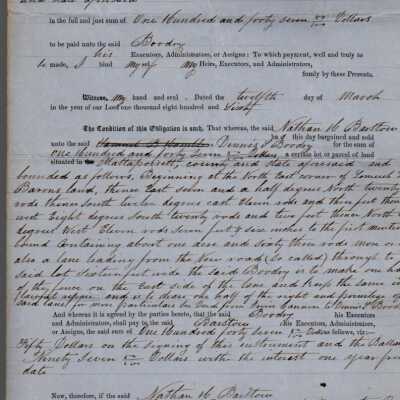 in the full and just sum of One Hundred and forty seven Dollars
to be paid unto the said Boodry
his Executors, Administrators, or Assigns: To which payment, well and truly to
be made, I bind myself my Heirs, Executors, and Administrators,
firmly by these Presents.
Witness, my hand and seal. Dated the twelfth day of March
in the year of our Lord one thousand eight hundred and Sixty
The Condition of this Obligation is such, That whereas, the said Nathan H. Barstow
has this day bargained and sold
unto the said Boodry for the sum of
One Hundred and forty Seven Dollars a certain lot or parcel of land
situated in Mattapoisett, County and State aforesaid and
bounded as follows, Beginning at the North East corner of Lemuel
Barons land, thence East seven and a half degrees North twenty
rods thence South twelve degrees east Eleven rods and five feet thence
west Eight degrees South twenty rods and two feet thence North
degrees West Eleven rods seven feet & six inches to the first mentioned
bound Containing about one acre and Sixty three rods more or
also a lane leading from the New road (so called) through to
said lot sixteen feet wide the said Boodry is to make one half
of the fence on the East side of the lane and keep the same in
lawful repair, and is to have one half of the right and privilege of
said lane,
And whereas it is agreed by the parties hereto, that the said Boodry his Executors
and Administrators, shall pay to the said Barstow his Executors, Administrators,
or Assigns, the said sum of One Hundred forty seven Dollars as follows, viz:—
Fifty Dollars on the signing of this instrument and the Ballance
Ninety Seven Dollars with the interest one year from
date
Now, therefore, if the said Nathan H. Barstow